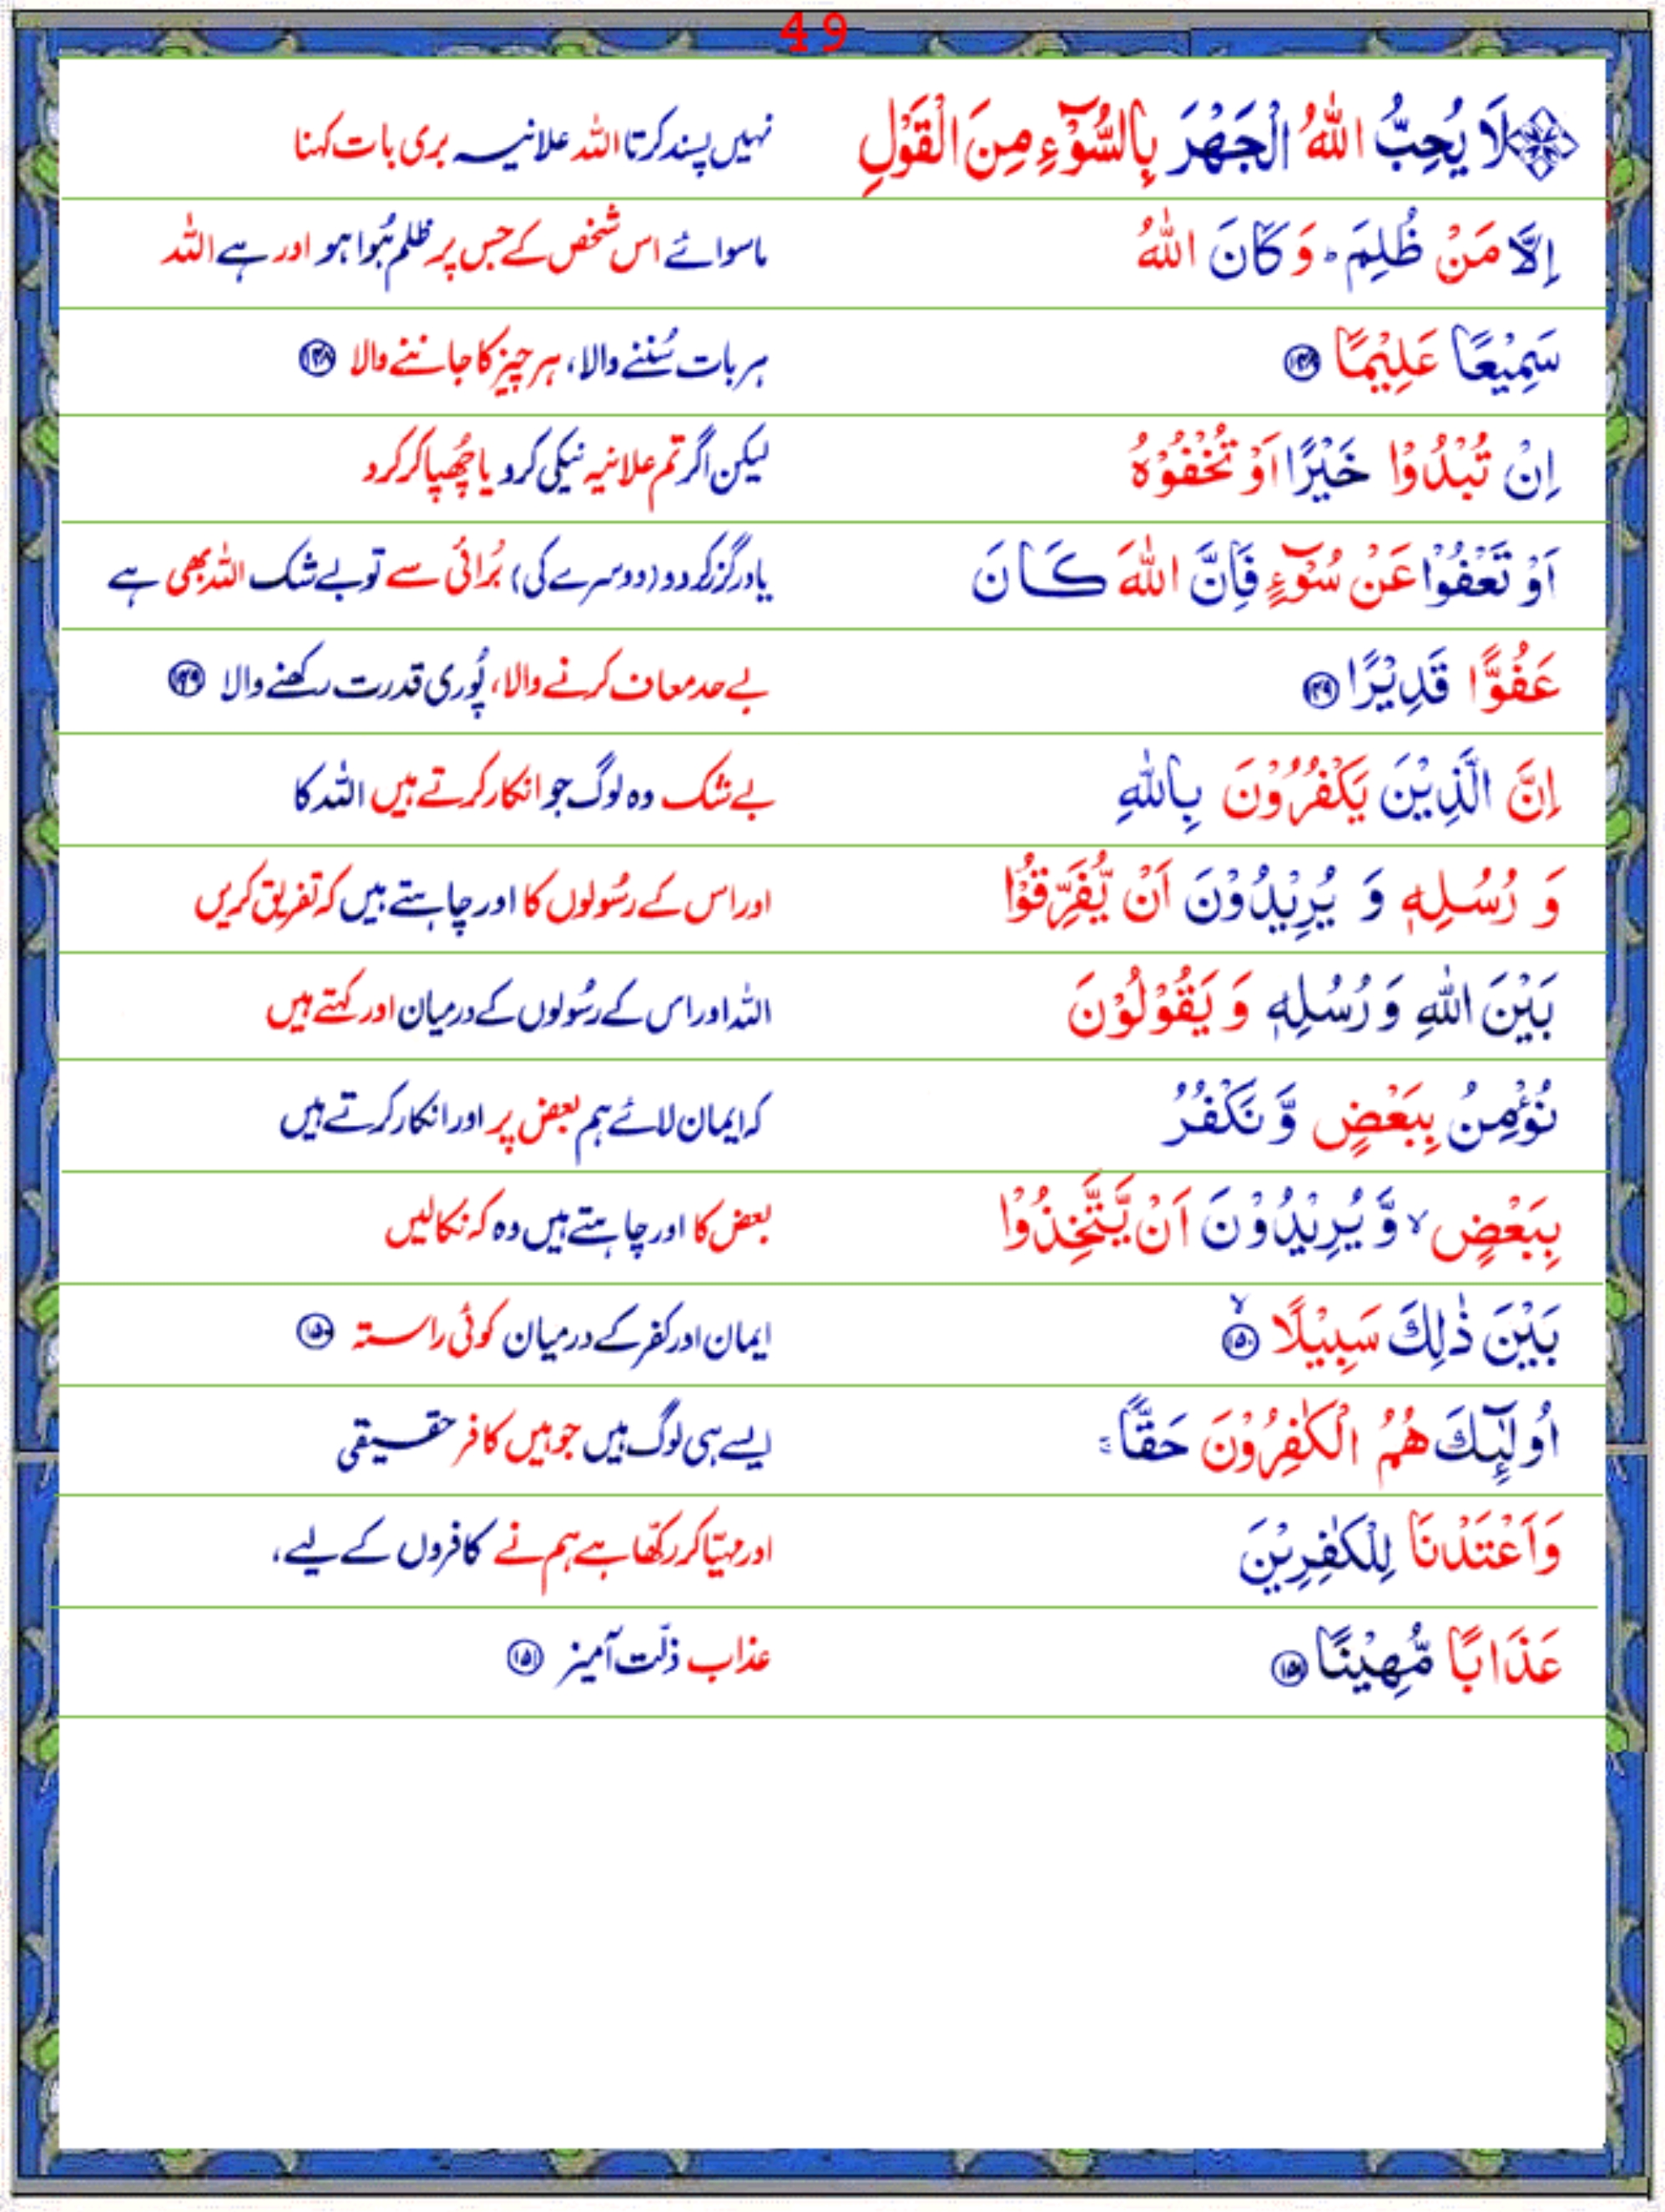 49
لَا يُحِبُّ اللّٰهُ الْجَهْرَ بِالسُّوْٓءِ مِنَ الْقَوْلِ نہیں پسند کرتا اللہ علانیہ بری بات کہنا
اِلَّا مَنْ ظُلِمَ ؕ وَ كَانَ اللّٰهُ ماسوائے اس شخص کے جس پر ظلم ہُوا ہو اور ہے اللہ
سَمِيْعًا عَلِيْمًا ﴿۱۴۸﴾ ہر بات سُننے والا، ہر چیز کا جاننے والا ﴿۱۴۸﴾
اِنْ تُبْدُوْا خَيْرًا اَوْ تُخْفُوْهُ لیکن اگر تم علانیہ نیکی کرو یا چُھپا کر کرو
اَوْ تَعْفُوْا عَنْ سُوْٓءٍ فَاِنَّ اللّٰهَ كَانَ یا درگزر کر دو (دوسرے کی) بُرائی سے تو بے شک اللہ بھی ہے
عَفُوًّا قَدِيْرًا ﴿۱۴۹﴾ بے حد معاف کرنے والا، پُوری قدرت رکھنے والا ﴿۱۴۹﴾
اِنَّ الَّذِيْنَ يَكْفُرُوْنَ بِاللّٰهِ بے شک وہ لوگ جو انکار کرتے ہیں اللہ کا
وَ رُسُلِهٖ وَ يُرِيْدُوْنَ اَنْ يُّفَرِّقُوْا اور اس کے رسُولوں کا اور چاہتے ہیں کہ تفریق کریں
بَيْنَ اللّٰهِ وَ رُسُلِهٖ وَ يَقُوْلُوْنَ اللہ اور اس کے رسُولوں کے درمیان اور کہتے ہیں
نُؤْمِنُ بِبَعْضٍ وَّ نَكْفُرُ کہ ایمان لائے ہم بعض پر اور انکار کرتے ہیں
بِبَعْضٍ ۙ وَّ يُرِيْدُوْنَ اَنْ يَّتَّخِذُوْا بعض کا اور چاہتے ہیں وہ کہ نکالیں
بَيْنَ ذٰلِكَ سَبِيْلًا ﴿۱۵۰﴾ۙ ایمان اور کفر کے درمیان کوئی راستہ ﴿۱۵۰﴾
اُولٰٓئِكَ هُمُ الْكٰفِرُوْنَ حَقًّا ۚ ایسے ہی لوگ ہیں جو ہیں کافر حقیقی
وَ اَعْتَدْنَا لِلْكٰفِرِيْنَ اور مہیّا کر رکھّا ہے ہم نے کافروں کے لیے،
عَذَابًا مُّهِيْنًا ﴿۱۵۱﴾ عذاب ذلّت آمیز ﴿۱۵۱﴾